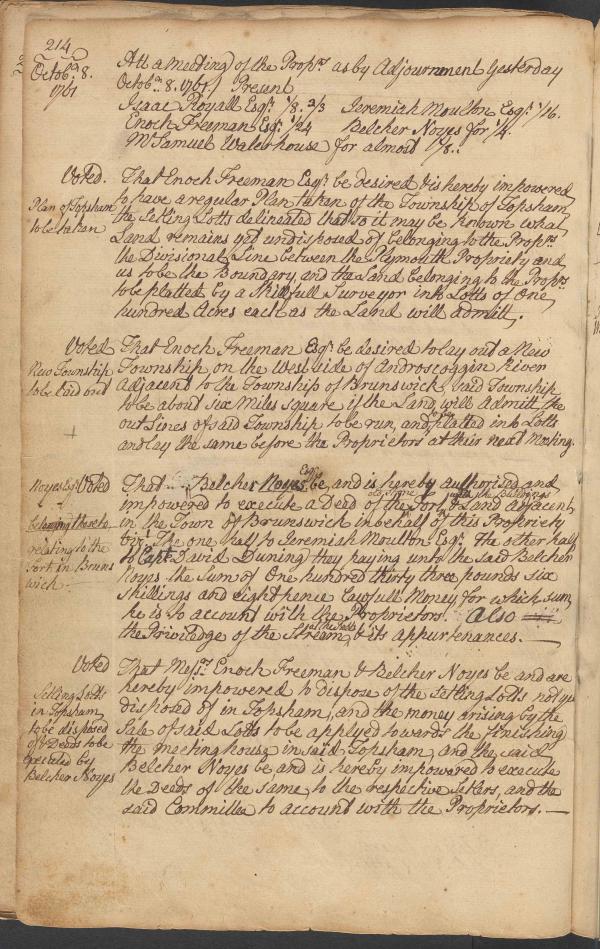 214
Octobr. 8.
1761
Att a meeting of the Proprs. as by Adjournment Yesterday
Octobr. 8. 1761. Present
Isaac Royall Esqr. 1/8. 2/3 Jeremiah Moulton Esqr. 1/16.
Enoch Freeman Esqr. 1/24 Belcher Noyes for 1/4.
Mr Samuel Waterhouse for almost 1/8.
Plan of Topsham
to be taken
Voted. That Enoch Freeman Esqr. be desired & is hereby impowered
to have a regular Plan taken of the Township of Topsham,
the Setling Lotts delineated that so it may be known what
Land remains yet undisposed of belonging to the Proprs.
the Divisional Line between the Plymouth Propriety and
us to be the Boundary, and the Land belonging to the Proprs.
to be platted by a Skillfull Surveyor into Lotts of One
hundred Acres each as the Land will admitt.
New Township
to be laid out
+
Voted That Enoch Freeman Esqr. be desired to lay out a New
Township on the West side of Androscoggin River
Adjacent to the Township of Brunswick, said Township
to be about six Miles square if the Land will Admitt, the
out Lines of said Township to be run, and platted into Lotts
and lay the same before the Proprietors at their next Meeting.
Noyes Esqr.
belonging thereto
relating to the
Fort in Bruns
wick
Voted That Belcher Noyes Esqr. be, and is hereby authorised and
impowered to execute a Deed of the old Stone Fort & Land adjacent with the Buildings
in the Town of Brunswick in behalf of this Propriety
vizt. The one half to Jeremiah Moulton Esqr. the other half
to Capt. David Duning they paying unto the said Belcher
Noyes the Sum of One hundred thirty three pounds six
shillings and eight pence Lawfull Money, for which sum
he is to account with the Proprietors. Also
the Priviledge of the Stream at the Falls & its appurtenances.
Setling Lotts
in Topsham
to be disposed
of & Deeds to be
executed by
Belcher Noyes
Voted That Messrs. Enoch Freeman & Belcher Noyes be and are
hereby impowered to dispose of the setling Lotts not yet
disposed of in Topsham, and the money arising by the
Sale of said Lotts to be applyed towards the finishing
the meeting house in said Topsham, and the said
Belcher Noyes be and is hereby impowered to execute
the Deeds of the same to the respective setlers, and the
said Committee to account with the Proprietors.